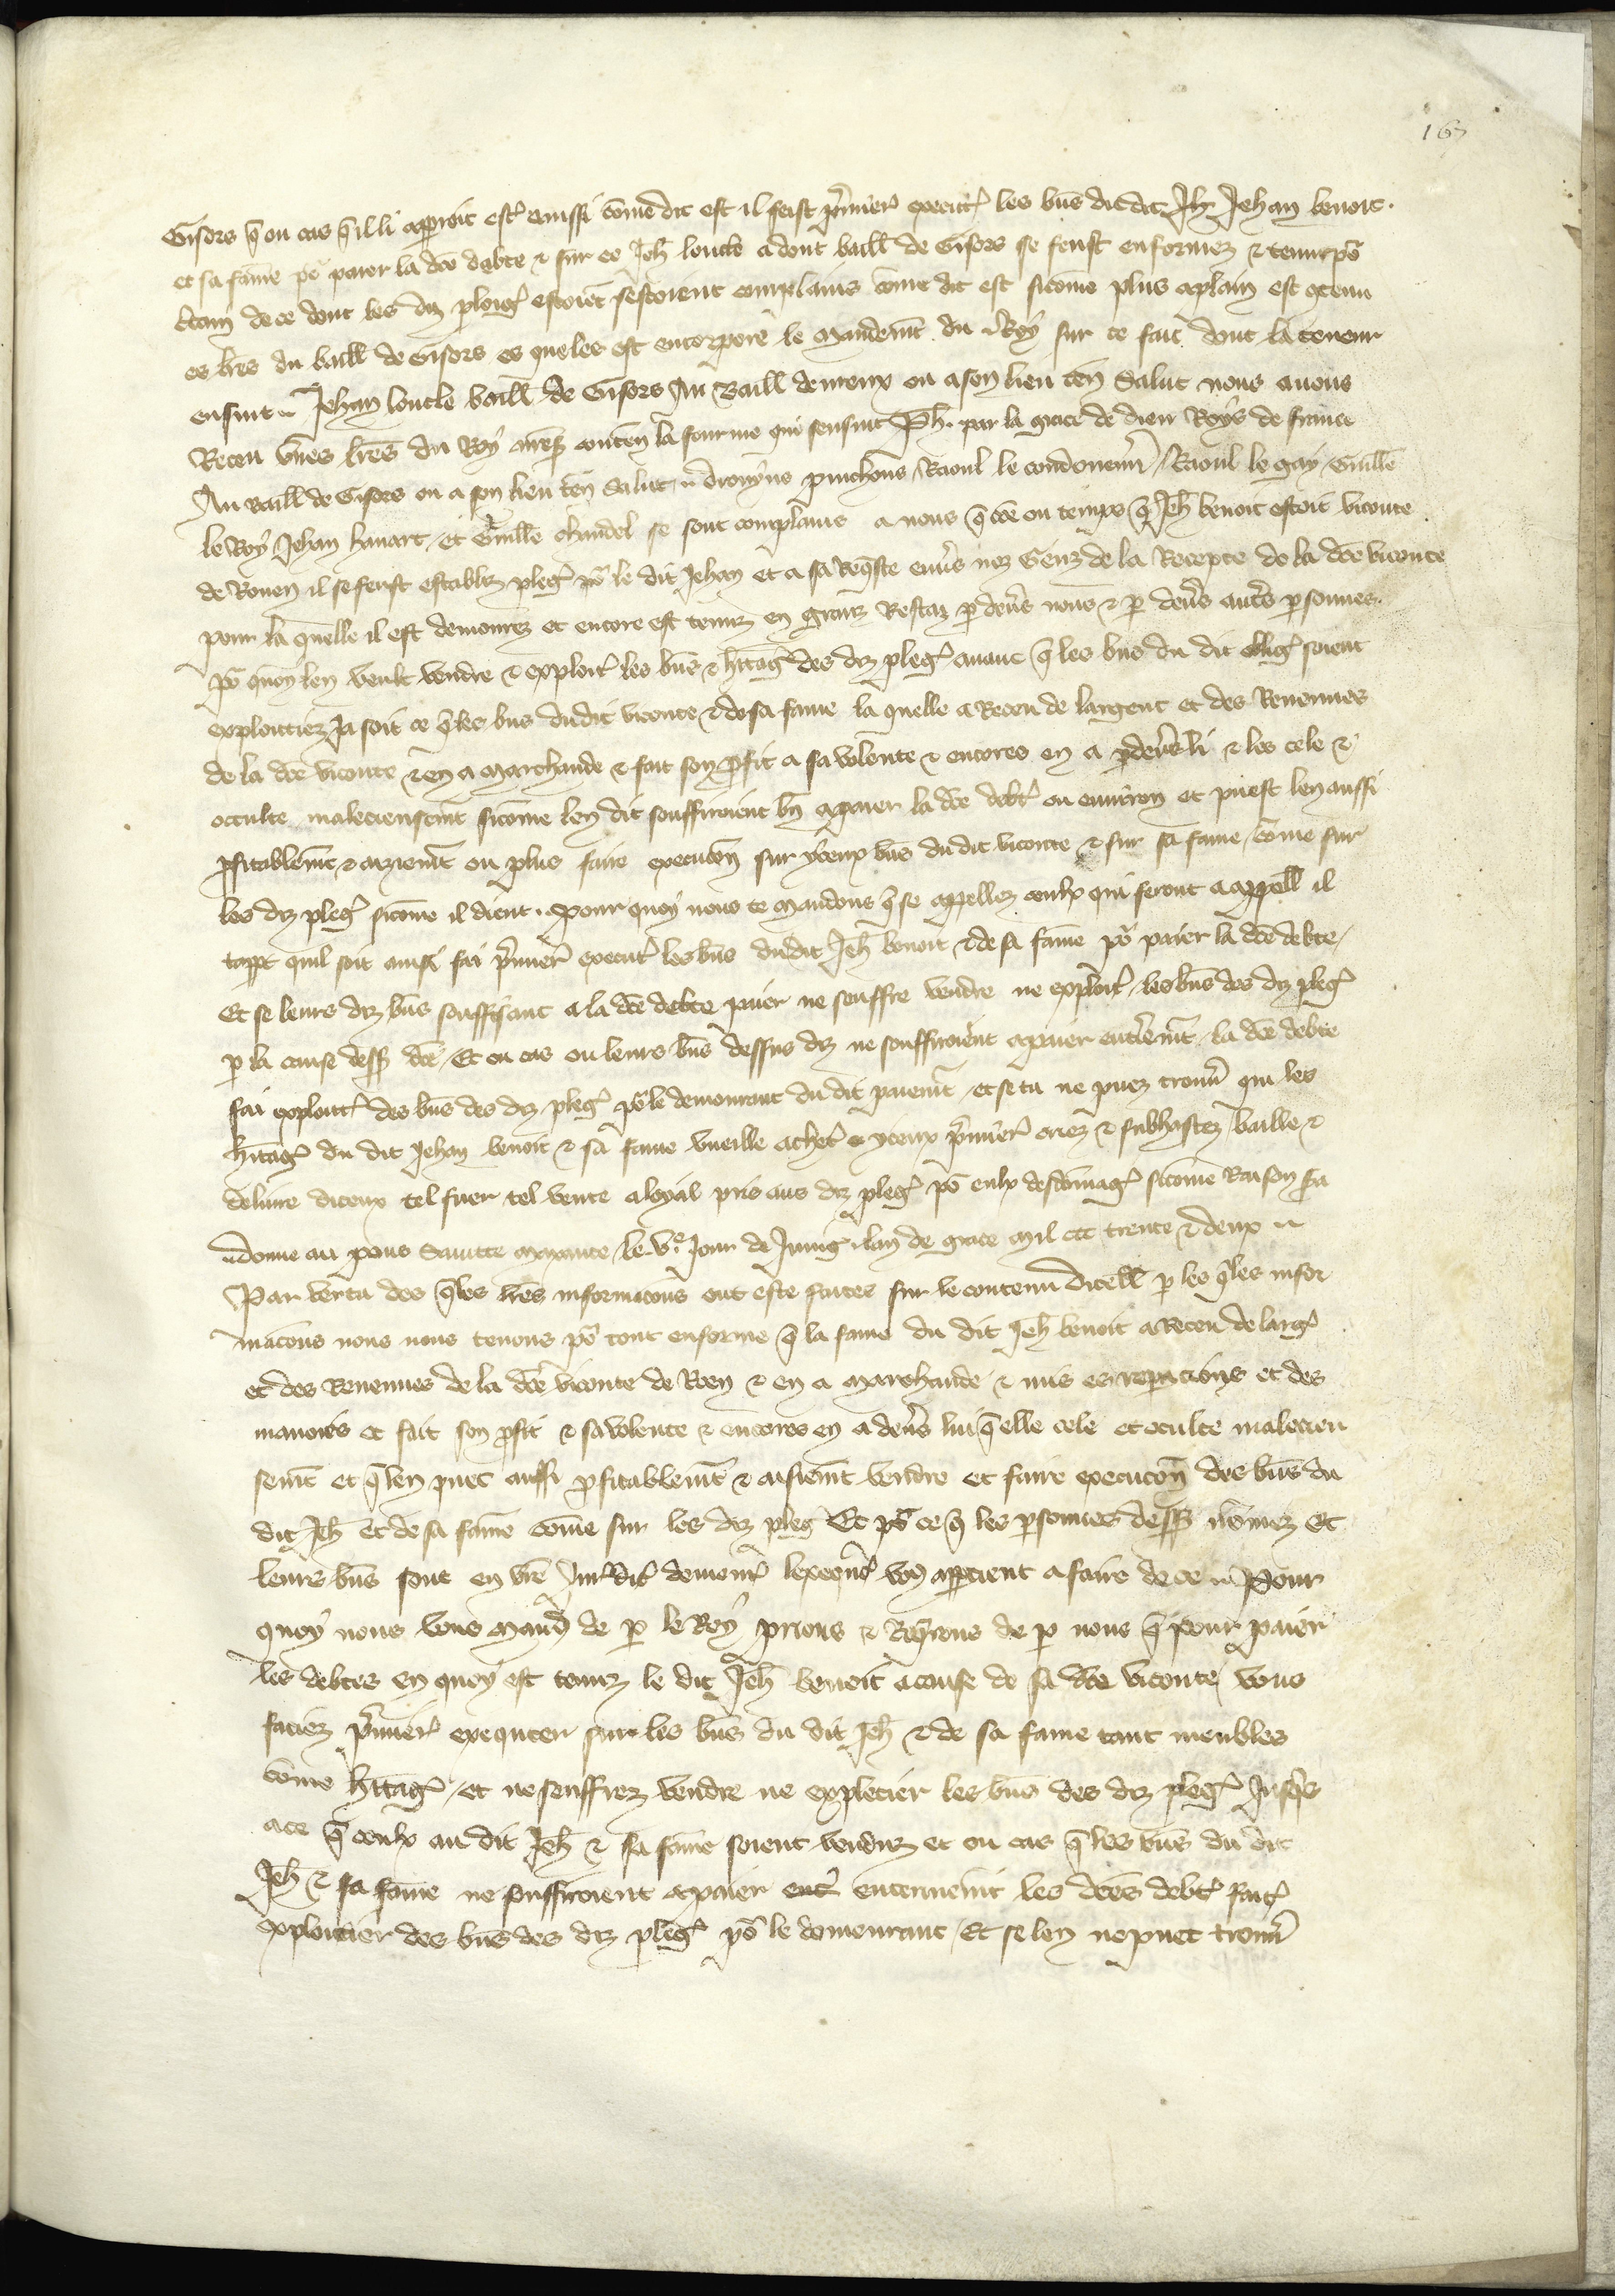 167
Gisors q̄ ou cas q̄ il li apparoit estr̄ ainssi cōme dit est il feist p̃mier execut̃ les bn̄s du dit Jeh̄ Jehan benoit.
et sa fame po᷑ paier la dc̄e debte ⁊ sur ce Jeh̄ loucle adont baill̄ de Gisors se feust enformez ⁊ tenu po᷑
c̃tain de ce dont les diz pleig̃ estoiēt sestoient complains cōme dit est sicōme plus aplain est 9tenu
es lr̄es du baill̄ de Gisors es queles est encorporé le mandem̄t du Roy sur ce fait dont la teneur
ensuit Jehan loucle baill̄ de Gisors Au Baill̄ de meux ou a son lieu ten̄ Salut nous auons
Receu vn̄es lr̄es du Roy nr̄e s̃ conten̄ la fourme qui sensuit Ph̄. par la grace de dieu Roys de france
Au Baill̄ de Gisors ou a son lieu ten̄ Salut dronyns pinchons Raoul le condonnier̃ / Raoul le gay / Guill̄e
le Roy Jehan hauart / et Guill̄e chandel se sont complains a nous q̄ cōe ou temps q̄ Jeh̄ benoit estoit viconte
de Rouen il se feust establiz pleg̃ po᷑ le dit Jehan et a sa Req̄ste enu̾s noz Genz de la Recepte de la dc̄e viconte
pour la quelle il est demourez et encore est tenuz en granz Restaz p deu̾s nous ⁊ p deu̾s aut̃s psonnes.
po᷑ quoy len veult vendre ⁊ exploit̃ les bn̄s ⁊ h̄itag̃ des diz pleg̃ auant q̄ les bn̄s du dit oblig̃ soient
exploittiez Ja soit ce q̄ les bn̄s du dit viconte ⁊ de sa fame la quelle a Receu de largent et des Reuenues
de la dc̄e viconte ⁊ en a marchande ⁊ fait son p̄fit a sa volente ⁊ encores en a p deu̾s li ⁊ les cele ⁊
occulte malecieusem̄t sicōme len dit souffiroient bn̄ a paier la dc̄e debt̃ ou enuiron et puest len aussi
p̄fitablem̄t ⁊ aiziem̄t ou plus faire execuc̄on sur yceux bn̄s du dit viconte ⁊ sur sa fame / cōme sur
les diz pleg̃ sicōme il dient. Pour quoy nous te mandons q̄ se appellez ceulx qui seront a appell̄ il
tappt quil soit ainsi fai p̃mier̃ execut̃ les bn̄s du dit Jeh̄ benoit ⁊ de sa fame po᷑ paier la dc̄e debte /
Et se leurs diz bn̄s souffisant a la dc̄e debte paier ne seuffre vendre ne exploit̃ / les bn̄s des diz pleg̃
p la cause dess̃ dc̄e / Et ou cas ou leurs bn̄s dessus diz ne souffiroient a paier entierem̄t la dc̄e debte
fai exploitt̃ des bn̄s des diz pleg̃ po᷑ le demourant du dit paiem̄t / et se tu ne puez trouu̾ qui les
h̄itag̃ du dit Jehan benoit ⁊ sa fame vueille achet̃ yceux p̃mier̃ criez ⁊ subhastez baille ⁊
deliure diceux tel fuer tel vente a loyal pris aus diz pleg̃ po᷑ eulx desdōmag̃ sicōme Raison s̃a
donne au pons Sainte mexance le v.e Jour de Juing lan de grace mil ccc trente ⁊ deux
Par vertu des q̄les lr̄es informac̄ons ont este faites sur le contenu dicell̄ p les q̄les infor
mac̄ons nous nous tenons po᷑ tout enforme q̄ la fame du dit Jeh̄ benoit a Receu de larg̃
et des Reuenues de la dc̄e viconte de Roen ⁊ en a marchande ⁊ mis es repacions et des
manoirs et fait son p̄fit ⁊ sa volente ⁊ encores en a deu̾s lui q̄ elle cele et oculte malecieu
sem̄t et q̄ len puet aussi p̄fitablem̄t ⁊ aisiem̄t vendre et faire execuc̄on des bn̄s du
dit Jeh̄ et de sa fame cōme sur les diz pleg̃ Et po᷑ ce q̄ les psonnes dess̃ nōmez Et
leurs bn̄s sont en vr̄e Jurid̃ demour̃ lexeqūc̃ vo9 apptient a faire de ce Pour
quoy nous vous mand̃ de p le Roy prions ⁊ Requerons de p nous q̄ pour paier
les debtes en quoy est tenuz le dit Jeh̄ benoit a cause de sa dc̄e viconte vous
faciez p̃mier̃ exequter sur les bn̄s du dit Jeh̄ ⁊ de sa fame tant meubles
cōme h̄itag̃ / et ne seuffrez vendre ne explectier les bn̄s des diz pleg̃ Jusq̄s
a ce q̄ ceulx au dit Jeh̄ ⁊ sa fame soient venduz et ou cas q̄ les bn̄s du dit
Jeh̄ ⁊ sa fame ne souffiroient a paier ent̃ enterinem̄t les dc̄es debt̃ fait̃
exploittier des bn̄s des diz pleg̃ po᷑ le demourant / Et se len ne puet trouu̾